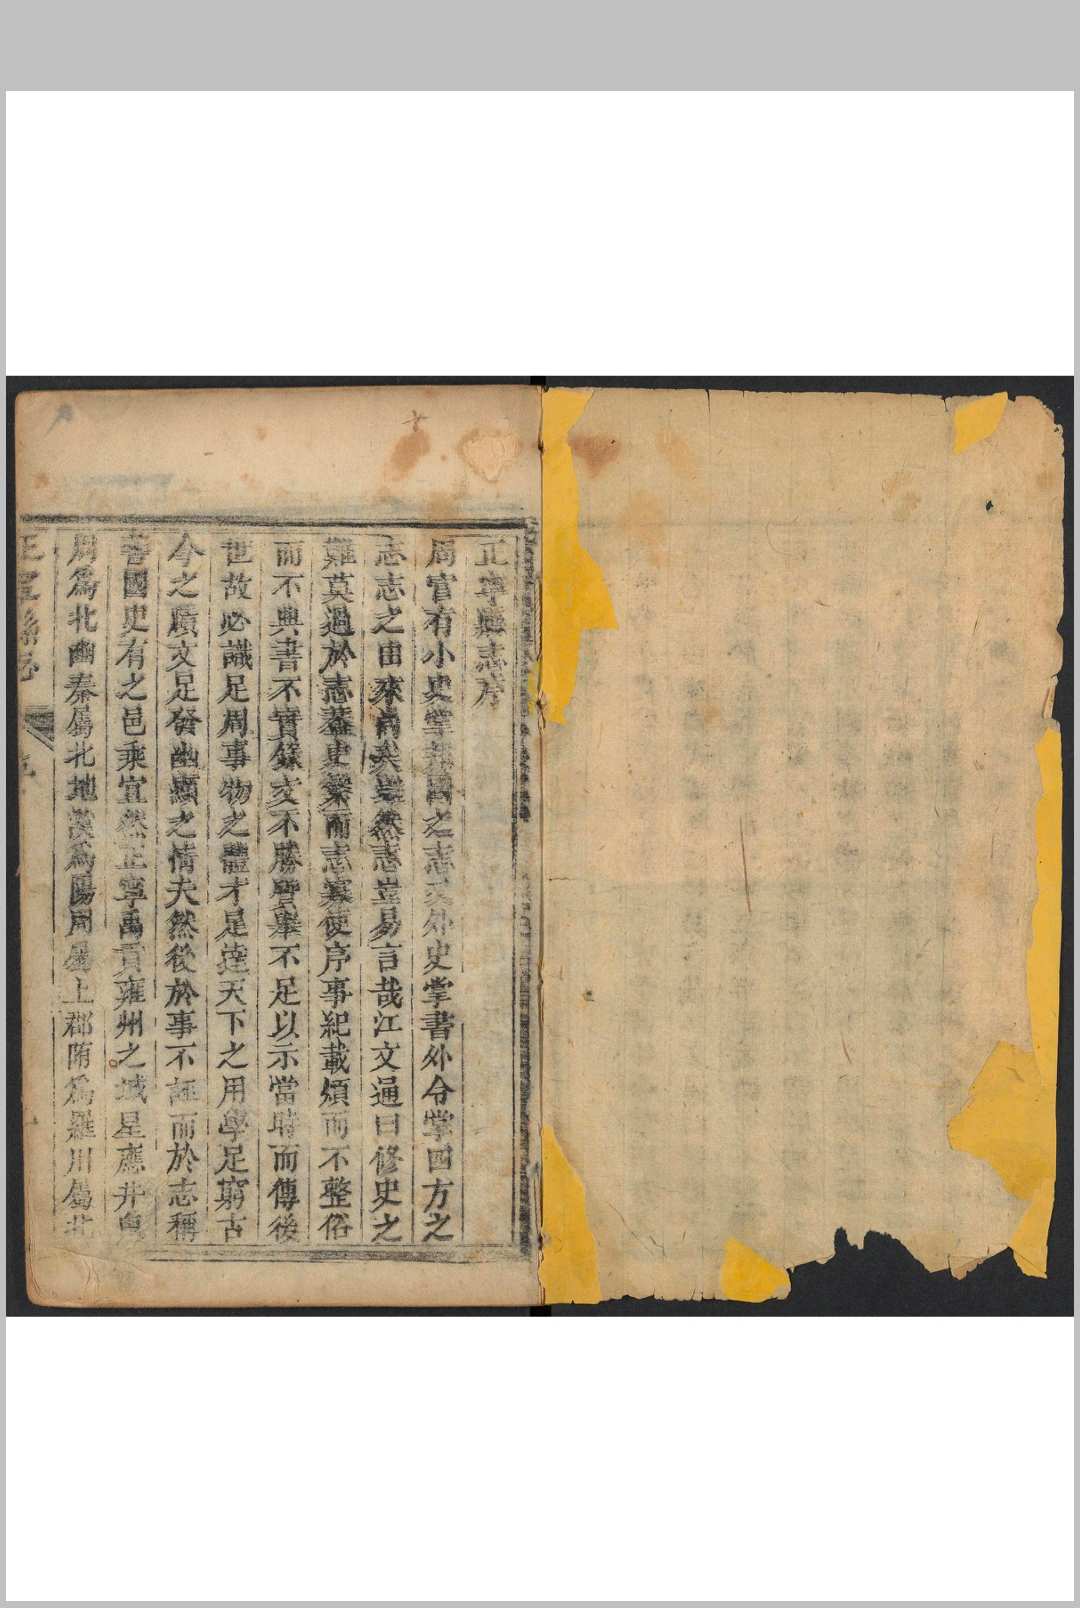 正寧縣志序
周官有小史掌邦國之志又外史掌書外令掌四方之
志志之由來尚矣雖然志豈易言哉江文通曰修史之
難莫過於志蓋史繁而志寡使序事紀載煩而不整俗
而不典書不實錄文不勝質舉不足以示當時而傳後
世故必識足周事物之體才足達天下之用學足窮古
今之賾文足發幽顯之情夫然後於事不誣而於志稱
善國史有之邑乘宜然正寧禹貢雍州之域星應井鬼
周為北豳秦屬北地漢為陽周屬上郡隋為羅川屬北
正寧縣志